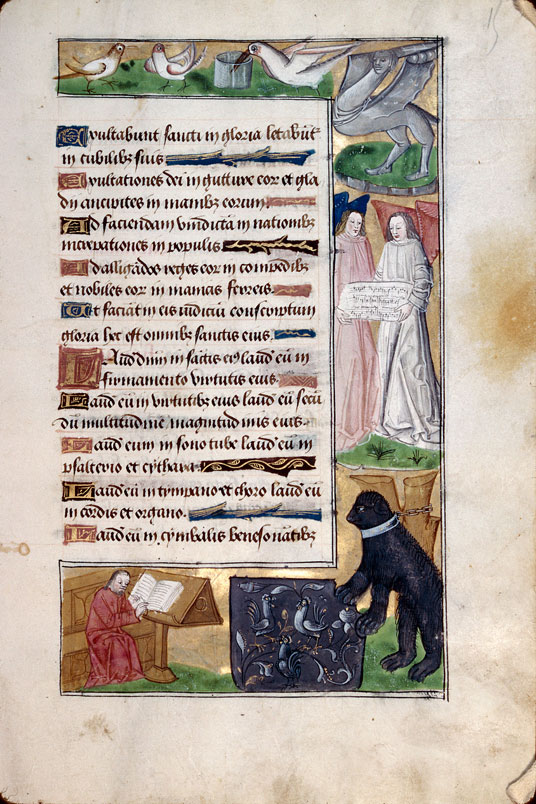 Exultabunt sancti in gloria letabūt
in cubilibꝫ suis
Exultationes dei in gutture eor et gla
dij ancipites in manibꝫ eorum
Ad faciendam vindictā in nationibꝫ
increpationes in populis
Ad alligandos reges eor in compedibꝫ
et nobiles eor in manicis ferreis
Ut faciant in eis iudiciū conscriptum
gloria hec est omnibꝫ sanctis eius
Laud dnm in sāctis eiꝰ laud eū in
firmamento virtutis eius
Laud eū in virtutibꝫ eius laud eū secū
dū multitudinē magnitudinis eius
Laud eum in sono tube laud eū in
psalterio et cythara
Laud eū in tympano et choro laud eū
in cordis et organo
Laud eū in cymbalis benesonātibꝫ